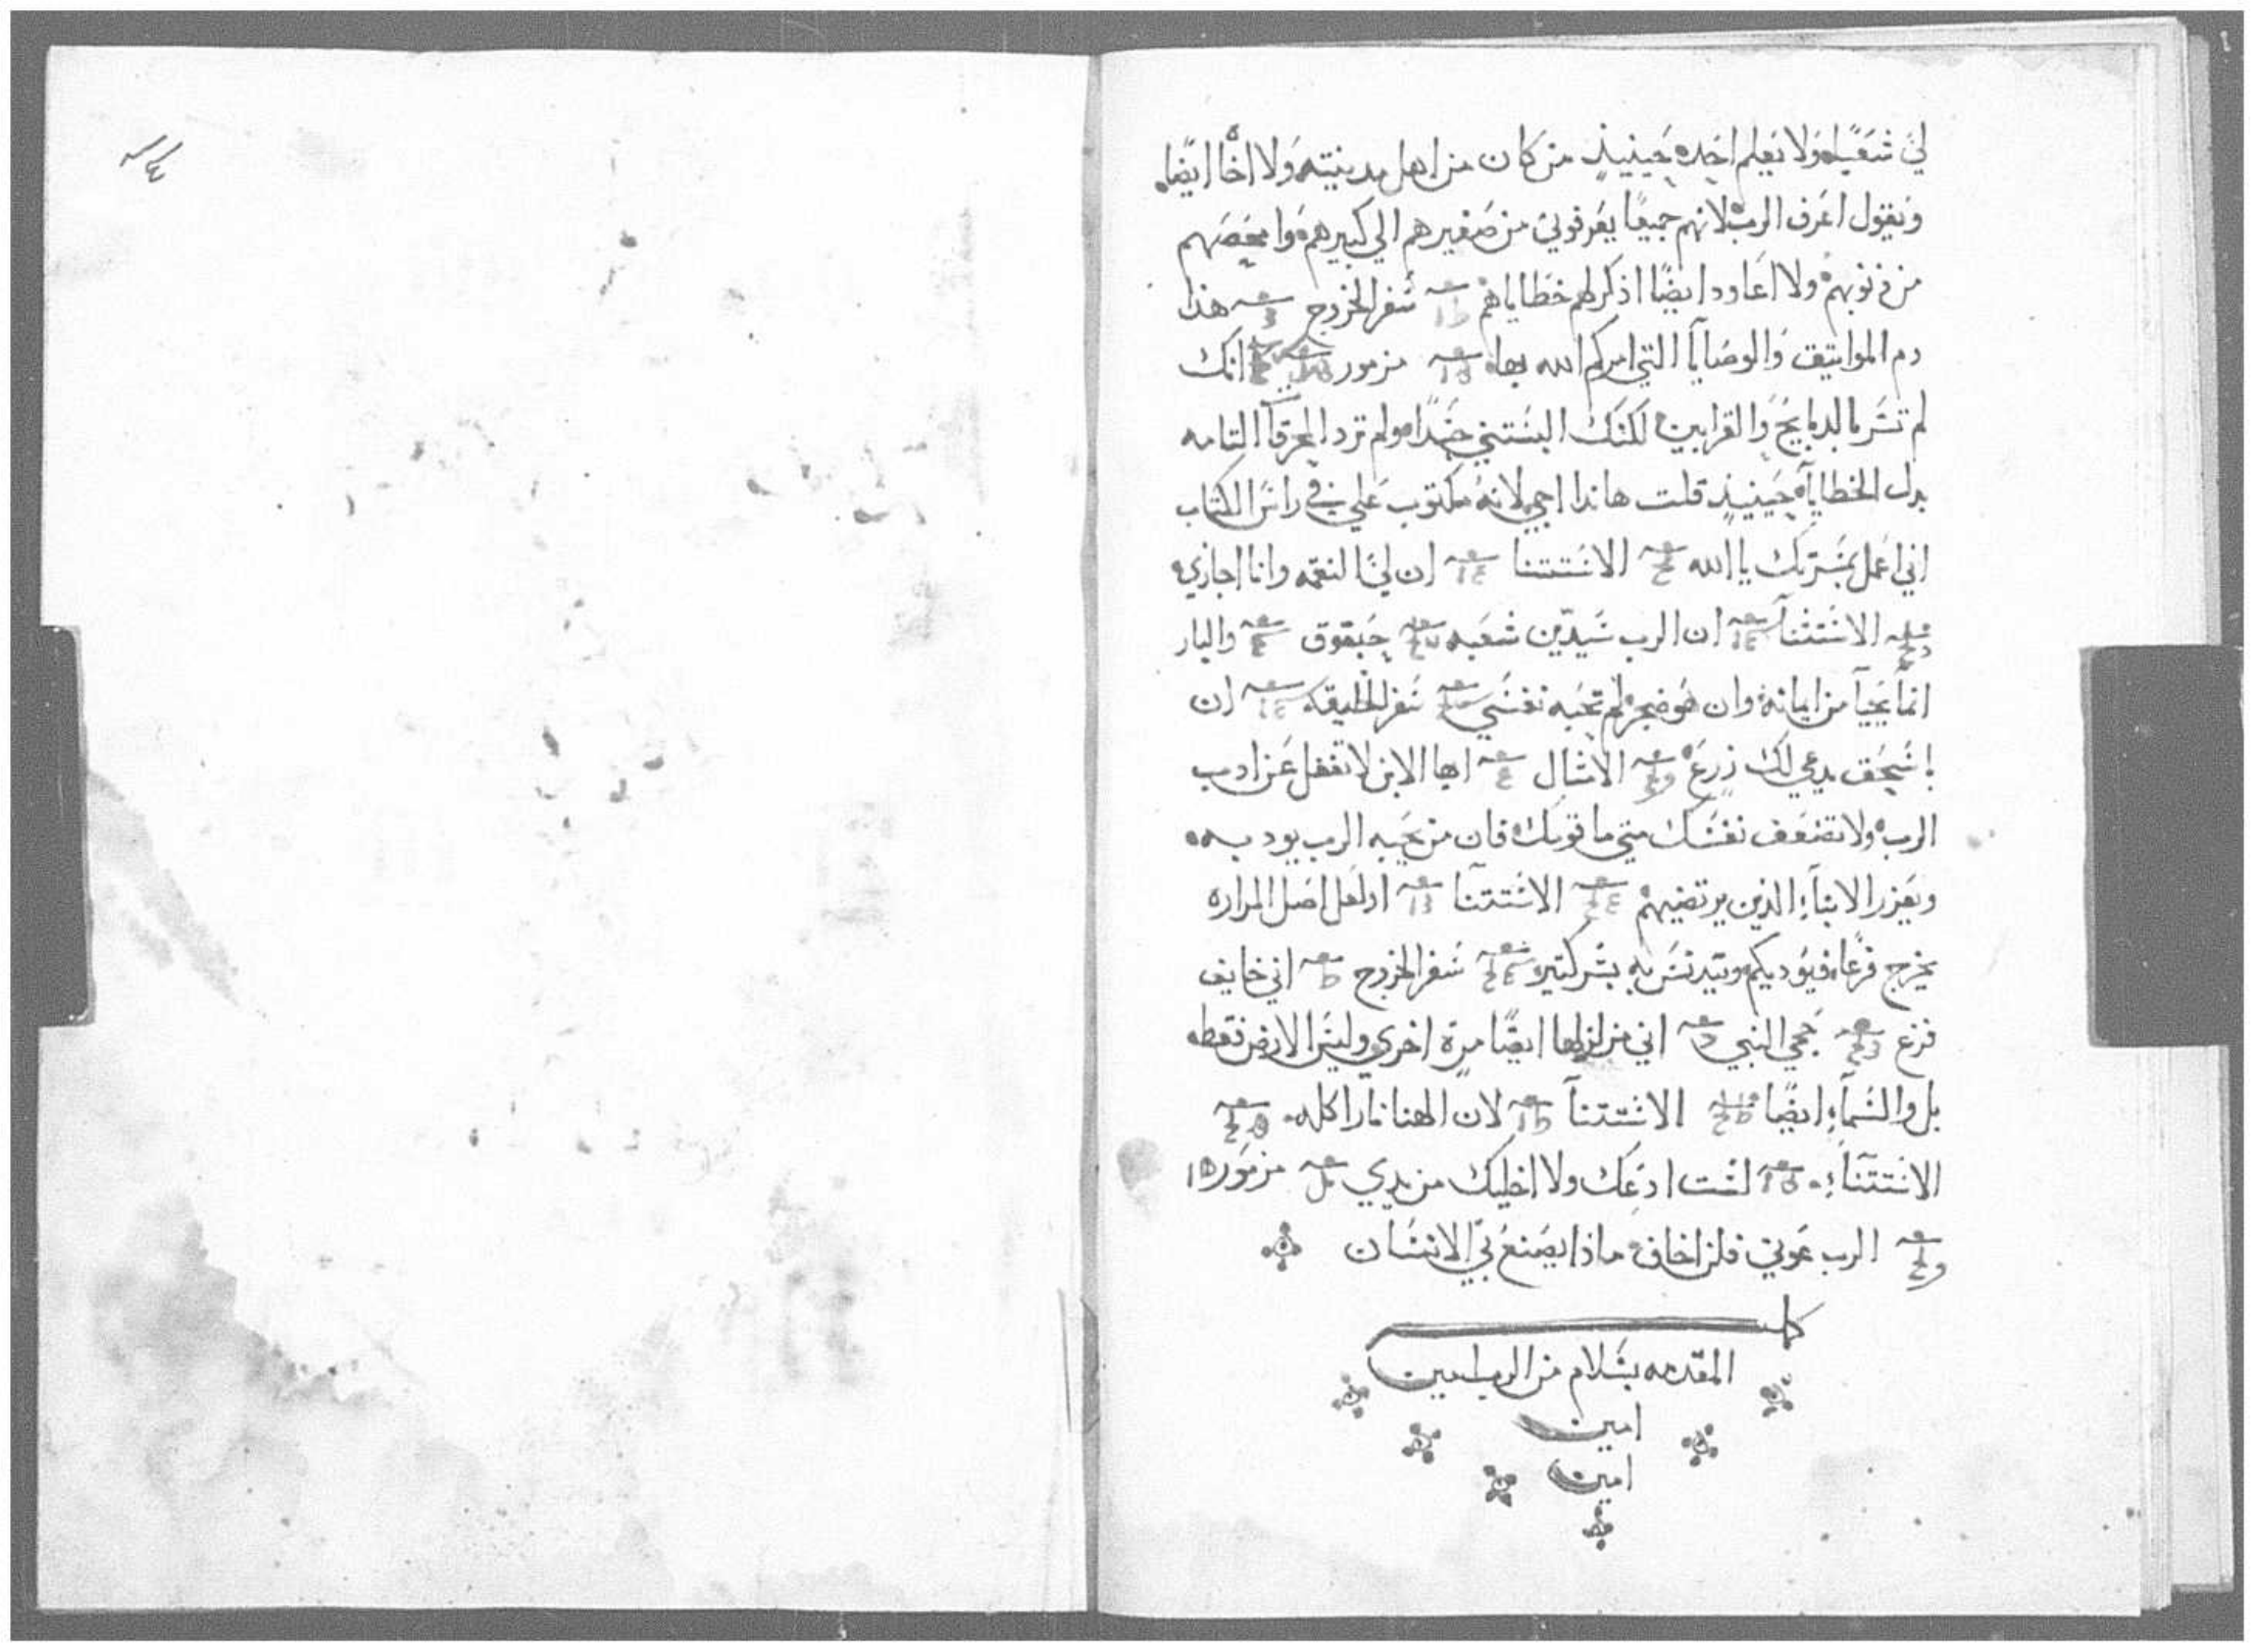 لي شعبًا ولا يعلم احده حينيذٍ من كان من اهل مدينته ولا اخًا ايضًا
ويقول اعرف الرب لانهم جميعًا يعرفوني من صغيرهم الي كبيرهم وامحصهم
من ذنوبهم ولا اعاود ايضًا اذكر لهم خطاياهم سفر الخروج هذا
دم المواتيق والوصايا التي امركم الله بها مزمور انك
لم تسر بالدبايح والقرابين لكنك البستني جسدًا ولم ترد المحرقات التامه
بدل الخطايا حينيذٍ قلت هاندا اجي لانه مكتوب علي في راس الكتاب
اني اعمل بمسرتك يا الله الاستتنا ان لي النقمه وانا اجازي
الاستتنا ان الرب سيدين شعبه حبقوق والبار
انما يحيا من ايمانه وان هو ضجر لم تحبه نفسي سفر الخليقه ان
باسحق يدعي لك زرع الامثال ايها الابن لا تغفل عن ادب
الرب ولا تضعف نفسك متي ما قومك فان من يحبه الرب يودبه
ويعزر الابناء الذين يرتضيهم الاستتنا او لعل اصل المراره
يخرج فرعًا فيوديكم ويتدنس به بشر كتير سفر الخروج اني خايف
فزع حجي النبي اني مزلزلها ايضًا مرة اخري وليس الارض فقط
بل والسماء ايضًا الاستتنا لان الهنا نار اكله
الاستتناء لست ادعك ولا اخليك من يدي مزمور
الرب عوني فلن اخاف ماذا يصنع بي الانسان
كملت
المقدمه بسلام من الرب امين
امين
امين